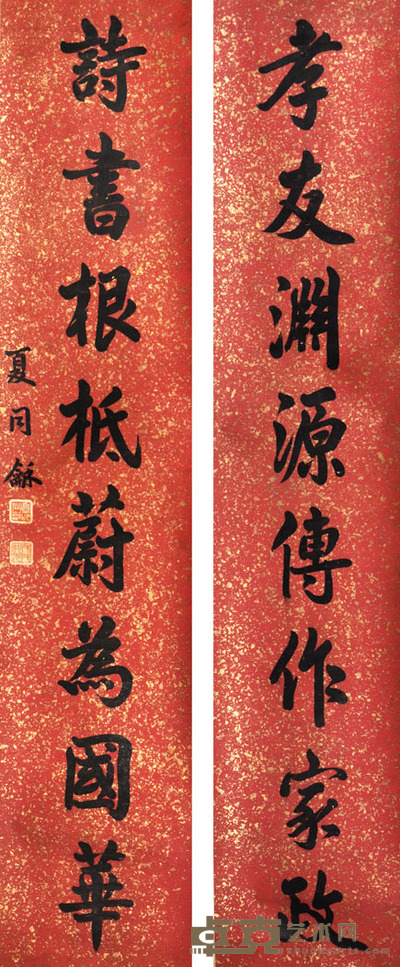 孝友淵源傳作家政
詩書根柢蔚為國華
夏同龢